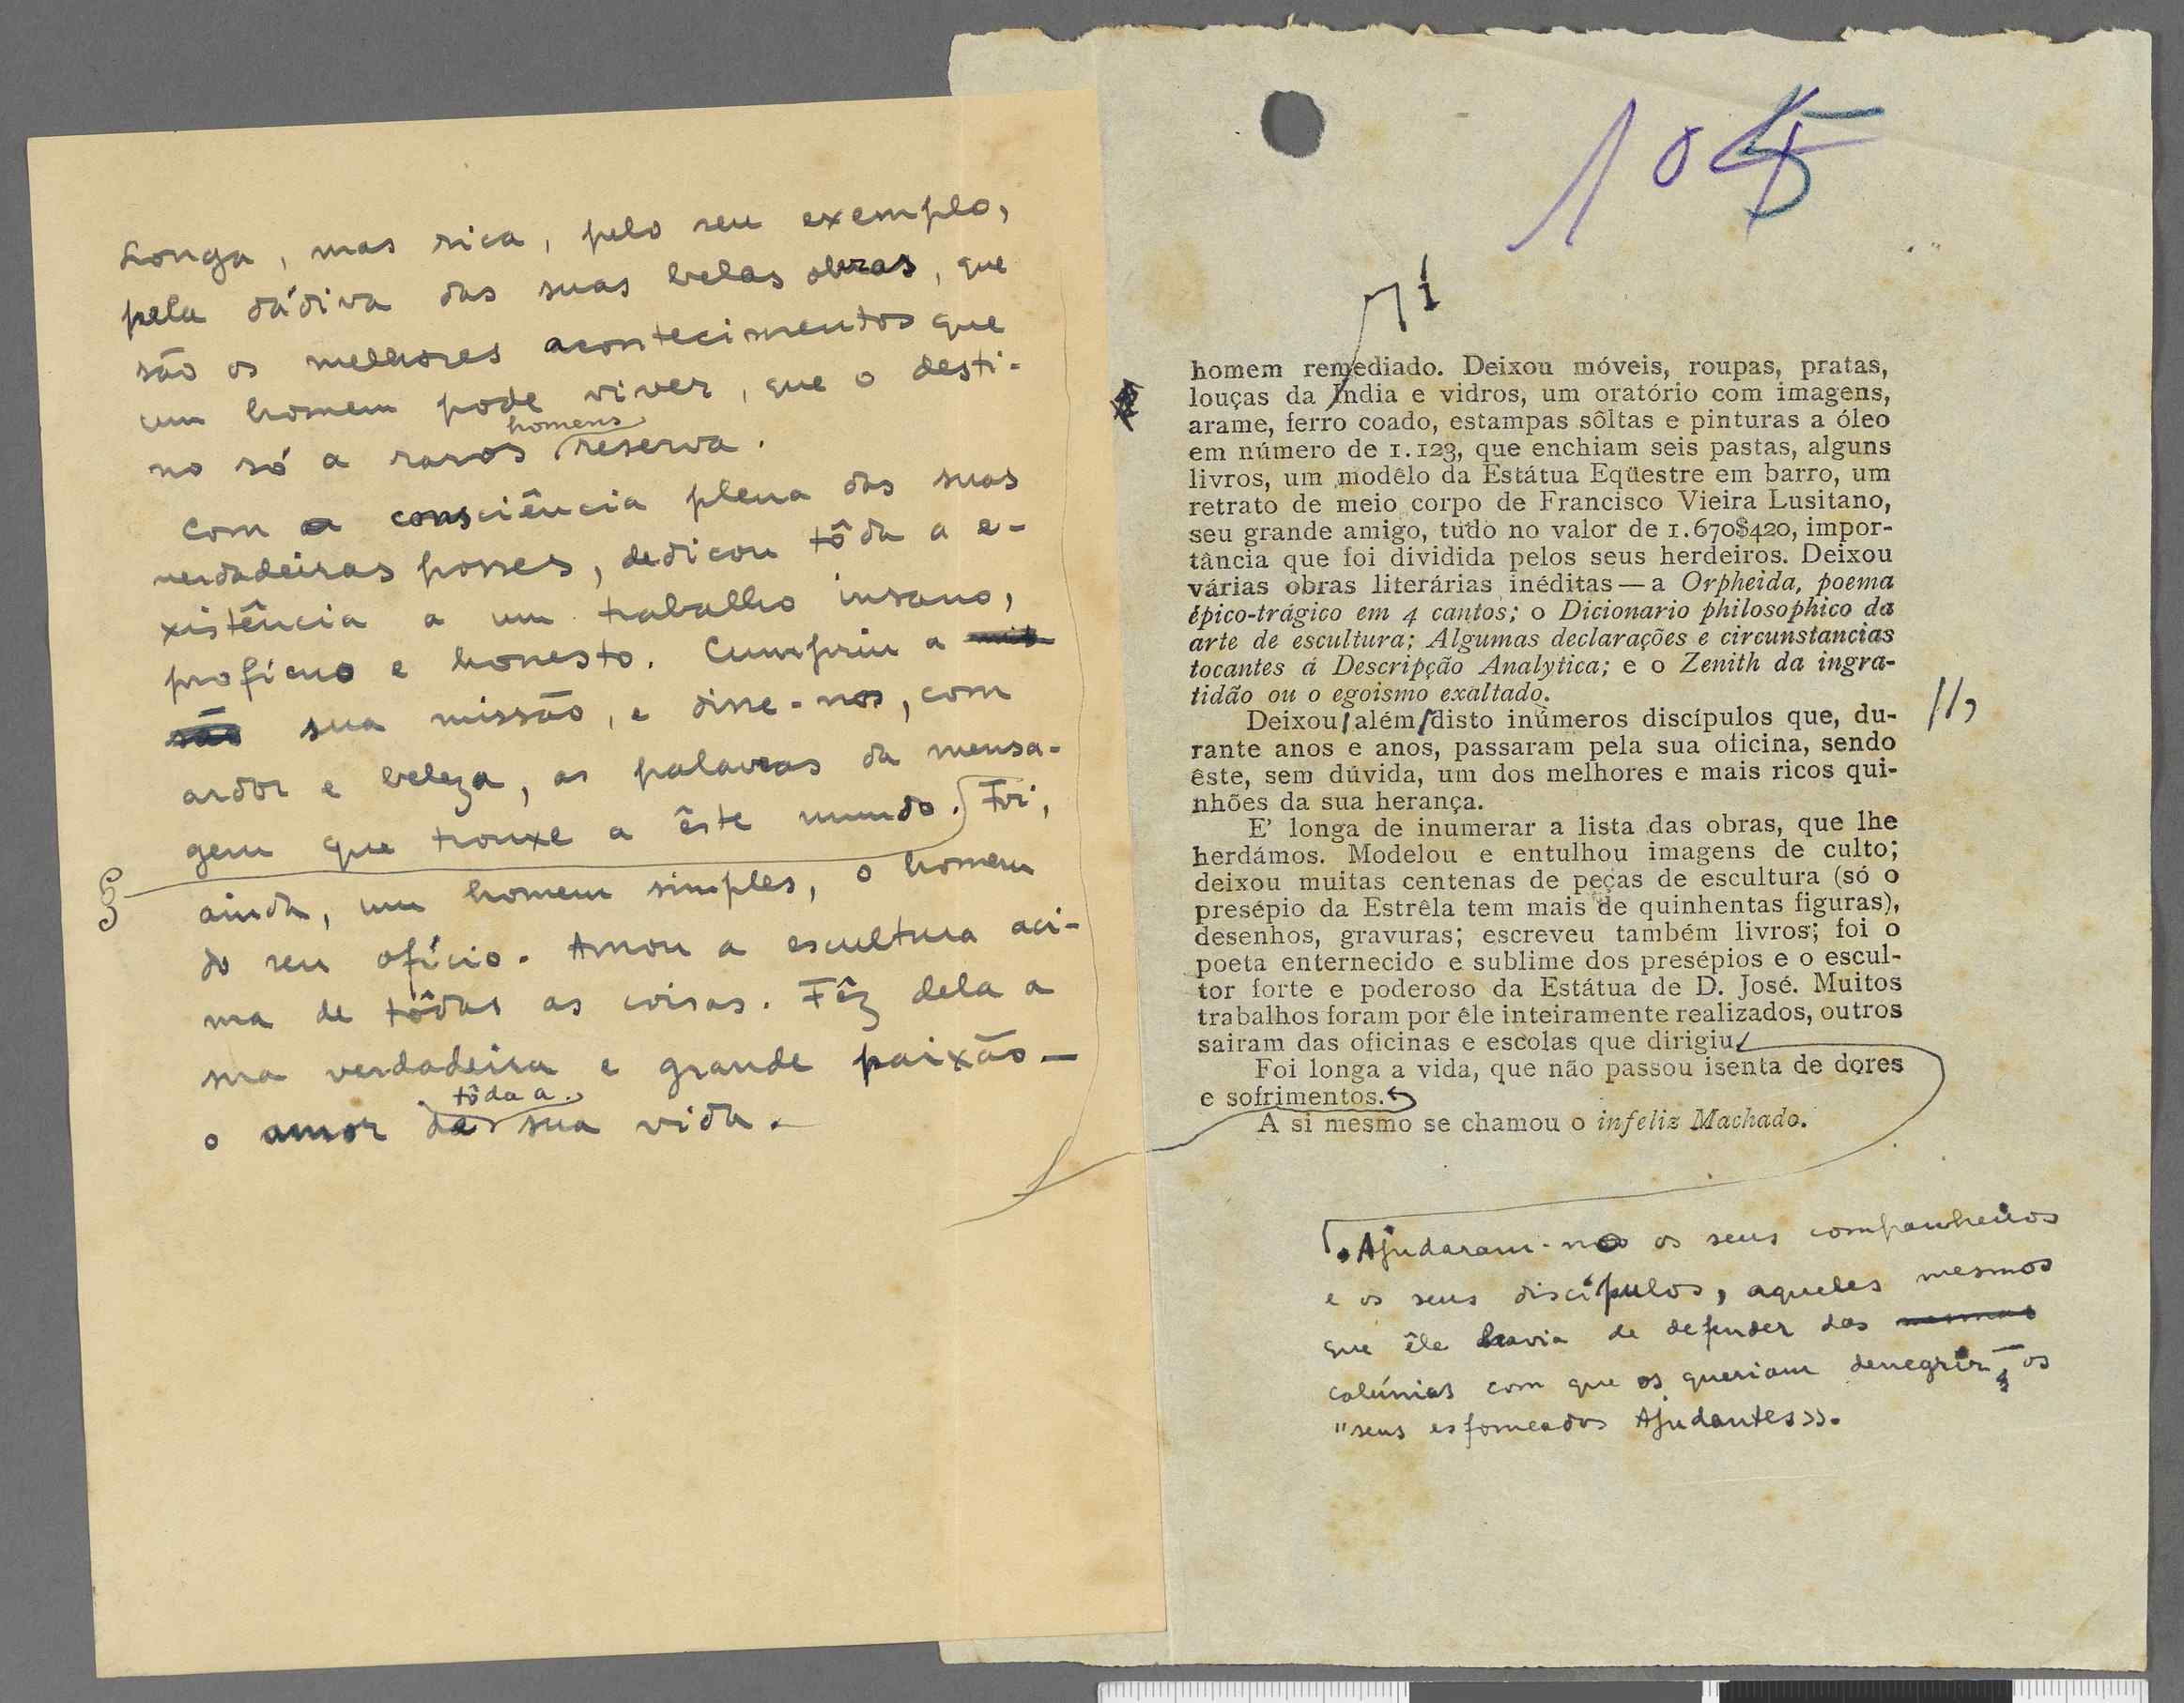 Longa, mas rica, pelo seu exemplo,
pela dádiva das suas belas obras, que
são os melhores acontecimentos que
um homem pode viver, que o desti-
no só a raros homens reserva.
Com a consciência plena das suas
verdadeiras posses, dedicou tôda a e-
xistência a um trabalho insano,
profícuo e honesto. Cumpriu a mis
são sua missão, e disse-nos, com
ardor e beleza, as palavras da mensa-
gem que trouxe a êste mundo. Foi,
ainda, um homem simples, o homem
do seu ofício. Amou a escultura aci-
ma de tôdas as coisas. Fêz dela a
sua verdadeira e grande paixão —
o amor de tôda a sua vida.
105
í
homem remediado. Deixou móveis, roupas, pratas,
louças da Índia e vidros, um oratório com imagens,
arame, ferro coado, estampas sôltas e pinturas a óleo
em número de 1.123, que enchiam seis pastas, alguns
livros, um modêlo da Estátua Eqüestre em barro, um
retrato de meio corpo de Francisco Vieira Lusitano,
seu grande amigo, tudo no valor de 1.670$420, impor-
tância que foi dividida pelos seus herdeiros. Deixou
várias obras literárias inéditas — a Orpheida, poema
épico-trágico em 4 cantos; o Dicionario philosophico da
arte de escultura; Algumas declarações e circunstancias
tocantes á Descripção Analytica; e o Zenith da ingra-
tidão ou o egoismo exaltado.
Deixou além disto inúmeros discípulos que, du-
rante anos e anos, passaram pela sua oficina, sendo
êste, sem dúvida, um dos melhores e mais ricos qui-
nhões da sua herança.
E' longa de inumerar a lista das obras, que lhe
herdámos. Modelou e entulhou imagens de culto;
deixou muitas centenas de peças de escultura (só o
presépio da Estrêla tem mais de quinhentas figuras),
desenhos, gravuras; escreveu também livros; foi o
poeta enternecido e sublime dos presépios e o escul-
tor forte e poderoso da Estátua de D. José. Muitos
trabalhos foram por êle inteiramente realizados, outros
sairam das oficinas e escolas que dirigiu.
Foi longa a vida, que não passou isenta de dores
e sofrimentos.
A si mesmo se chamou o infeliz Machado.
Ajudaram-no os seus companheiros
e os seus discípulos, aqueles mesmos
que êle havia de defender das mesmas
calúnias com que os queriam denegrir, os
"seus esfomeados Ajudantes».